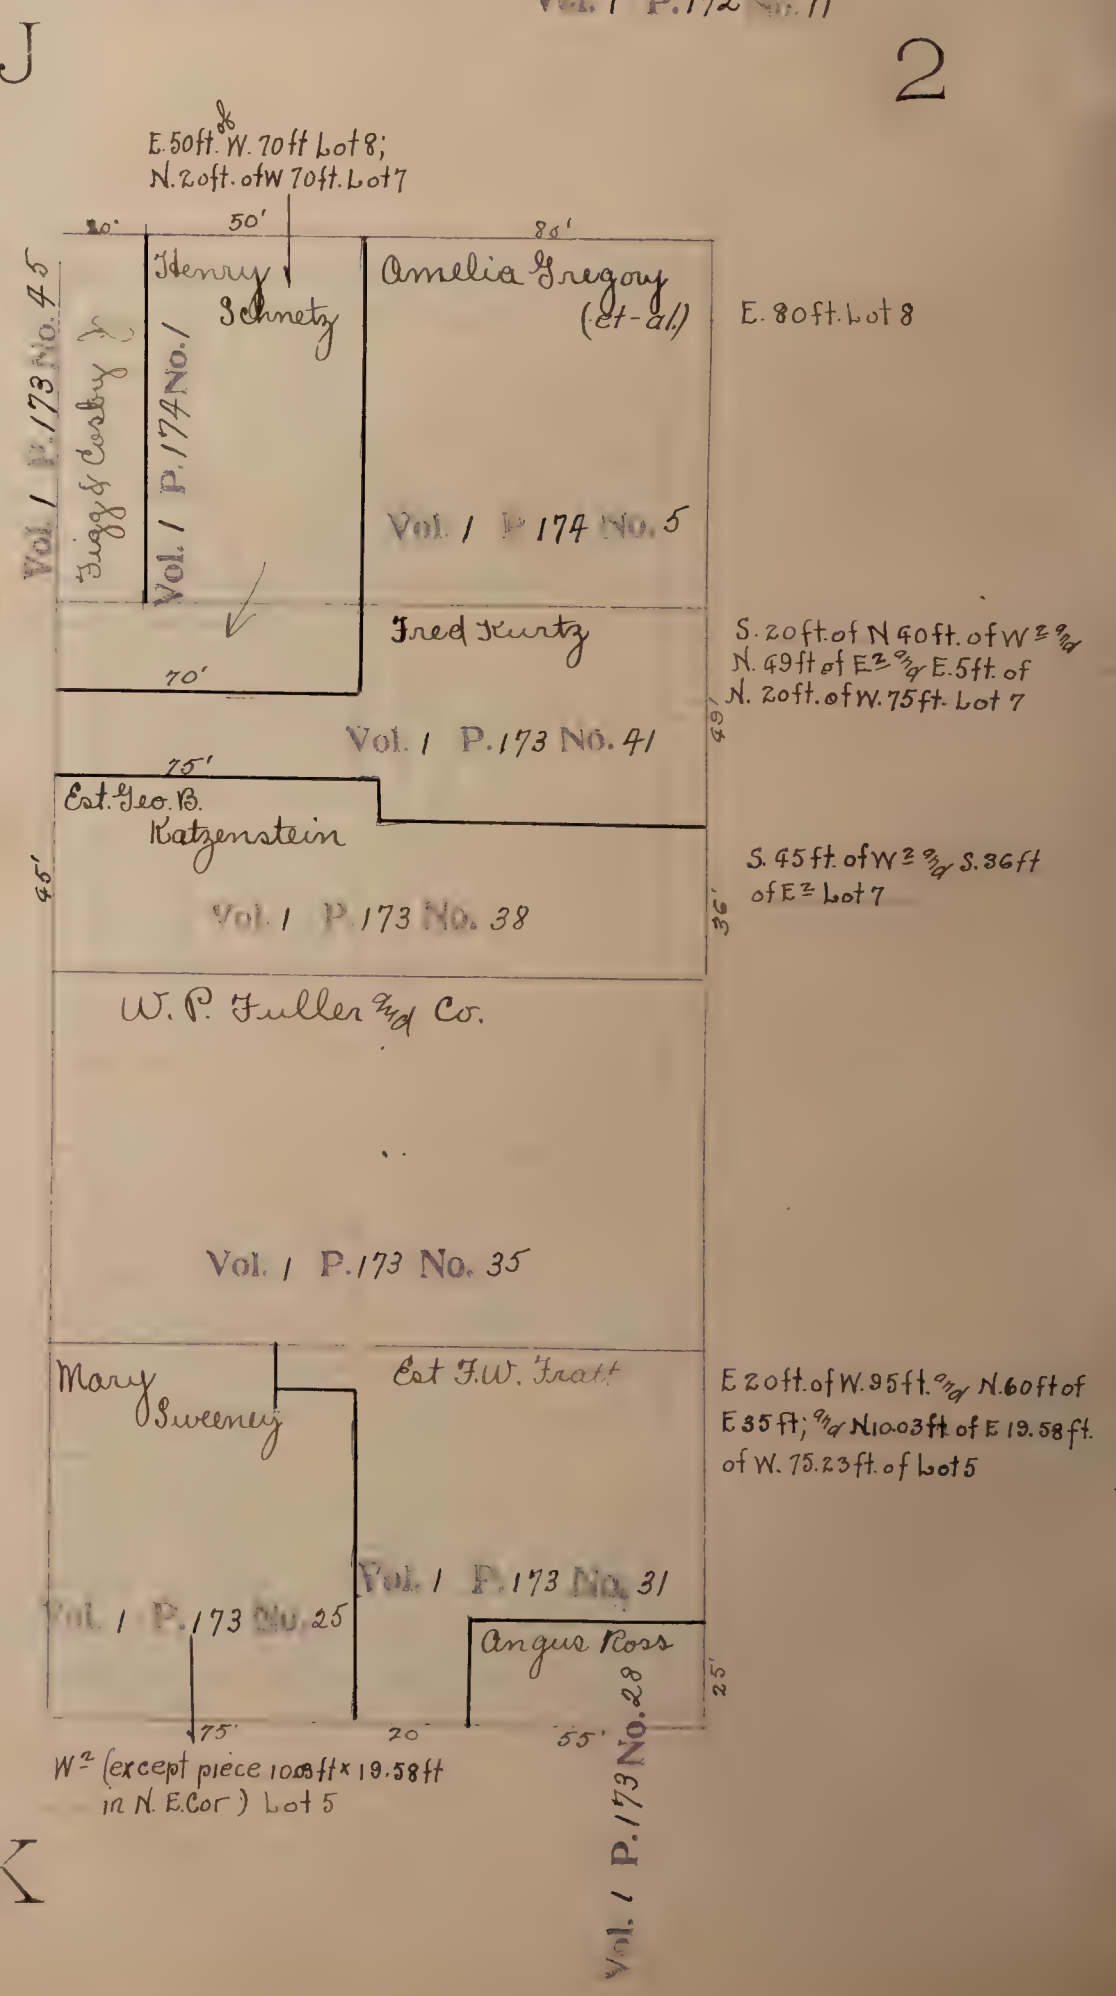 Vol. 1 P. 172 No. 11
J
2
E. 50ft. of W. 70ft Lot 8;
N. 20ft. of W 70ft. Lot 7
20'
50'
80'
Vol. 1 P. 173 No. 45
Figg & Cosby
Henry
Schnetz
Vol. 1 P. 174 No. 1
Amelia Gregory
(et-al.)
E. 80ft. Lot 8
Vol. 1 P 174 No. 5
Fred Kurtz
S. 20ft. of N 40ft. of W 2 and
N. 49ft of E 2 and E. 5ft. of
N. 20ft. of W. 75ft. Lot 7
70'
49'
Vol. 1 P. 173 No. 41
75'
Est. Geo. B.
Katzenstein
45'
S. 45ft. of W 2 and S. 36ft
of E 2 Lot 7
36'
Vol. 1 P. 173 No. 38
W. P. Fuller and Co.
Vol. 1 P. 173 No. 35
Mary
Sweeney
Est F.W. Fratt
E 20ft. of W. 95ft. and N. 60ft of
E 35ft; and N 10.03ft of E 19.58ft.
of W. 75.23ft. of Lot 5
Vol. 1 P. 173 No. 31
Vol. 1 P. 173 No. 25
Angus Ross
25'
Vol. 1 P. 173 No. 28
75'
20
55'
W 2 (except piece 10.03ft x 19.58ft
in N. E. Cor) Lot 5
K